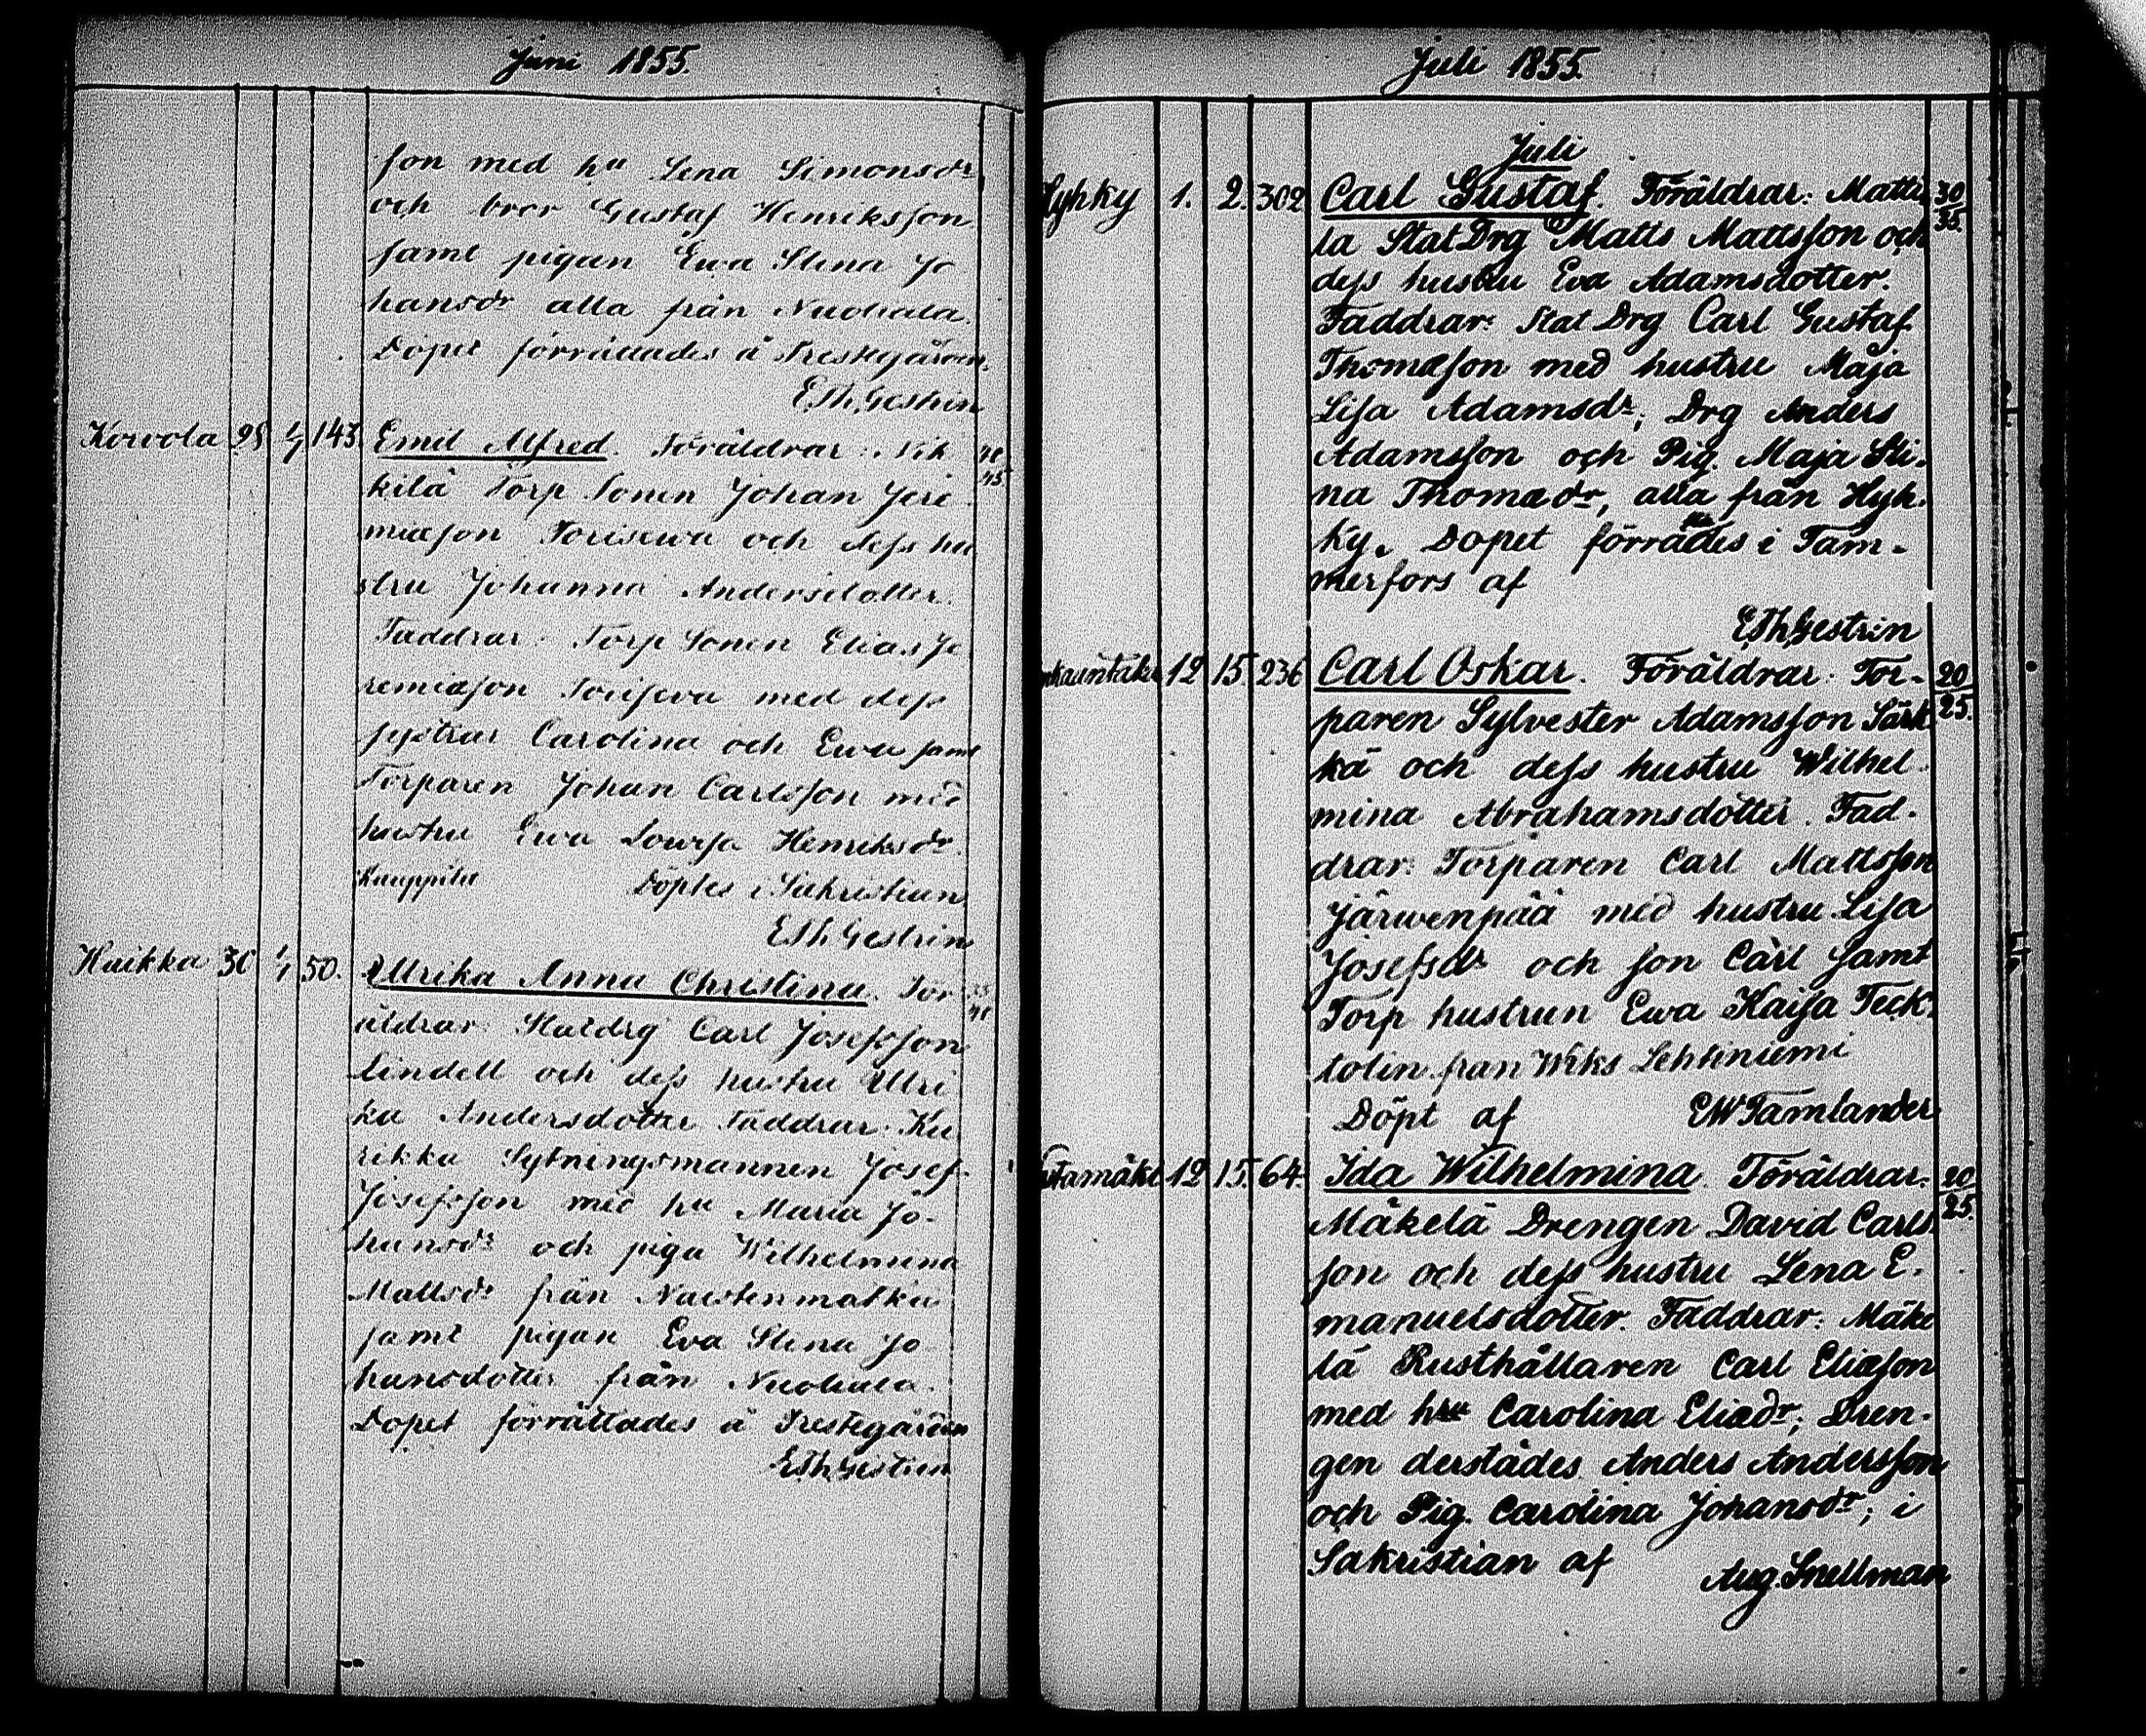 Juni 1855.
son med hu Lena Simonsdr
och bror Gustaf Henriksson
samt pigan Ewa Stina Jo
hansdr alla från Nuoliala.
Döpet förrättades å Prestegården.
E.Th.Gestrin
Korvola 28 1/7 143 Emil Alfred. Föräldrar: Nik
kilä Torp Sonen Johan Jere
miæson Torisewa och dess hu
stru Johanna Andersdotter.
Faddrar: Torp Sonen Elias Je
remiæson Torisewa med dess
systrar Carolina och Ewa samt
Torparen Johan Carlsson med
hustru Ewa Lowisa Henriksdr.
Kauppila Döptes i Sakristian
E.Th.Gestrin
Haikka 30 1/7 50. Ulrika Anna Christina. För
äldrar: Statdrg Carl Josefsson
Lindell och dess hustru Ulri
ka Andersdotter Faddrar: Ku
rikka Sytningsmannen Josef
Josefsson med hu Maria Jo-
hansdr och piga Wilhelmina
Mattsdr från Naistenmatka
samt pigan Eva Stina Jo
hansdotter från Nuoliala.
Dopet förrättades å Prestegården
E.Th.Gestrin
Juli 1855.
Juli
Hyhky 1. 2. 302 Carl Gustaf. Föräldrar: Matti 30/35.
la StatDrg Matts Mattsson och
dess hustru Eva Adamsdotter.
Faddrar: Stat Drg Carl Gustaf
Thomæson med hustru Maja
Lisa Adamsdr; Drg Anders
Adamsson och Pig. Maja Sti-
na Thomædr, alla från Hyh-
ky. Dopet förrättades i Tam-
merfors af
E.Th.Gestrin
12 15. 236 Carl Oskar. Föräldrar: Tor- 20/25.
paren Sylvester Adamsson Särk
kä och dess hustru Wilhel-
mina Abrahamsdotter. Fad-
drar: Torparen Carl Mattsson
Järwenpää med hustru Lisa
Josefsdr och son Carl samt
Torp hustrun Ewa Kaisa Teck
tolin från Wiks Lehtiniemi
Döpt af E W Tamlander
12 15. 64. Ida Wilhelmina. Föräldrar: 20/25.
Mäkelä Drengen David Carls
son och dess hustru Lena E-
manuelsdotter. Faddrar: Mäke
lä Rusthållaren Carl Eliæson
med hru Carolina Eliædr; Dren-
gen derstädes Anders Andersson
och Pig. Carolina Johansdr; i
Sakristian af Aug. Snellman